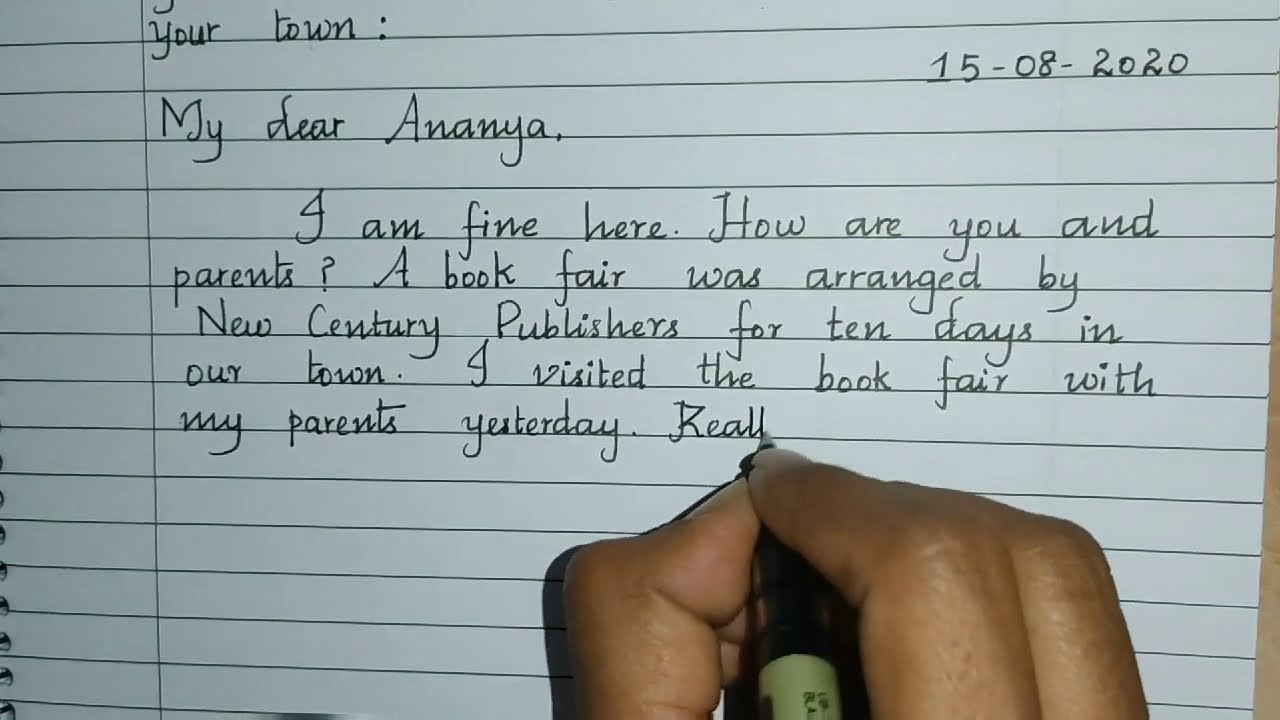 your town:
15-08-2020
My dear Ananya,
I am fine here. How are you and
parents? A book fair was arranged by
New Century Publishers for ten days in
our town. I visited the book fair with
my parents yesterday. Reall